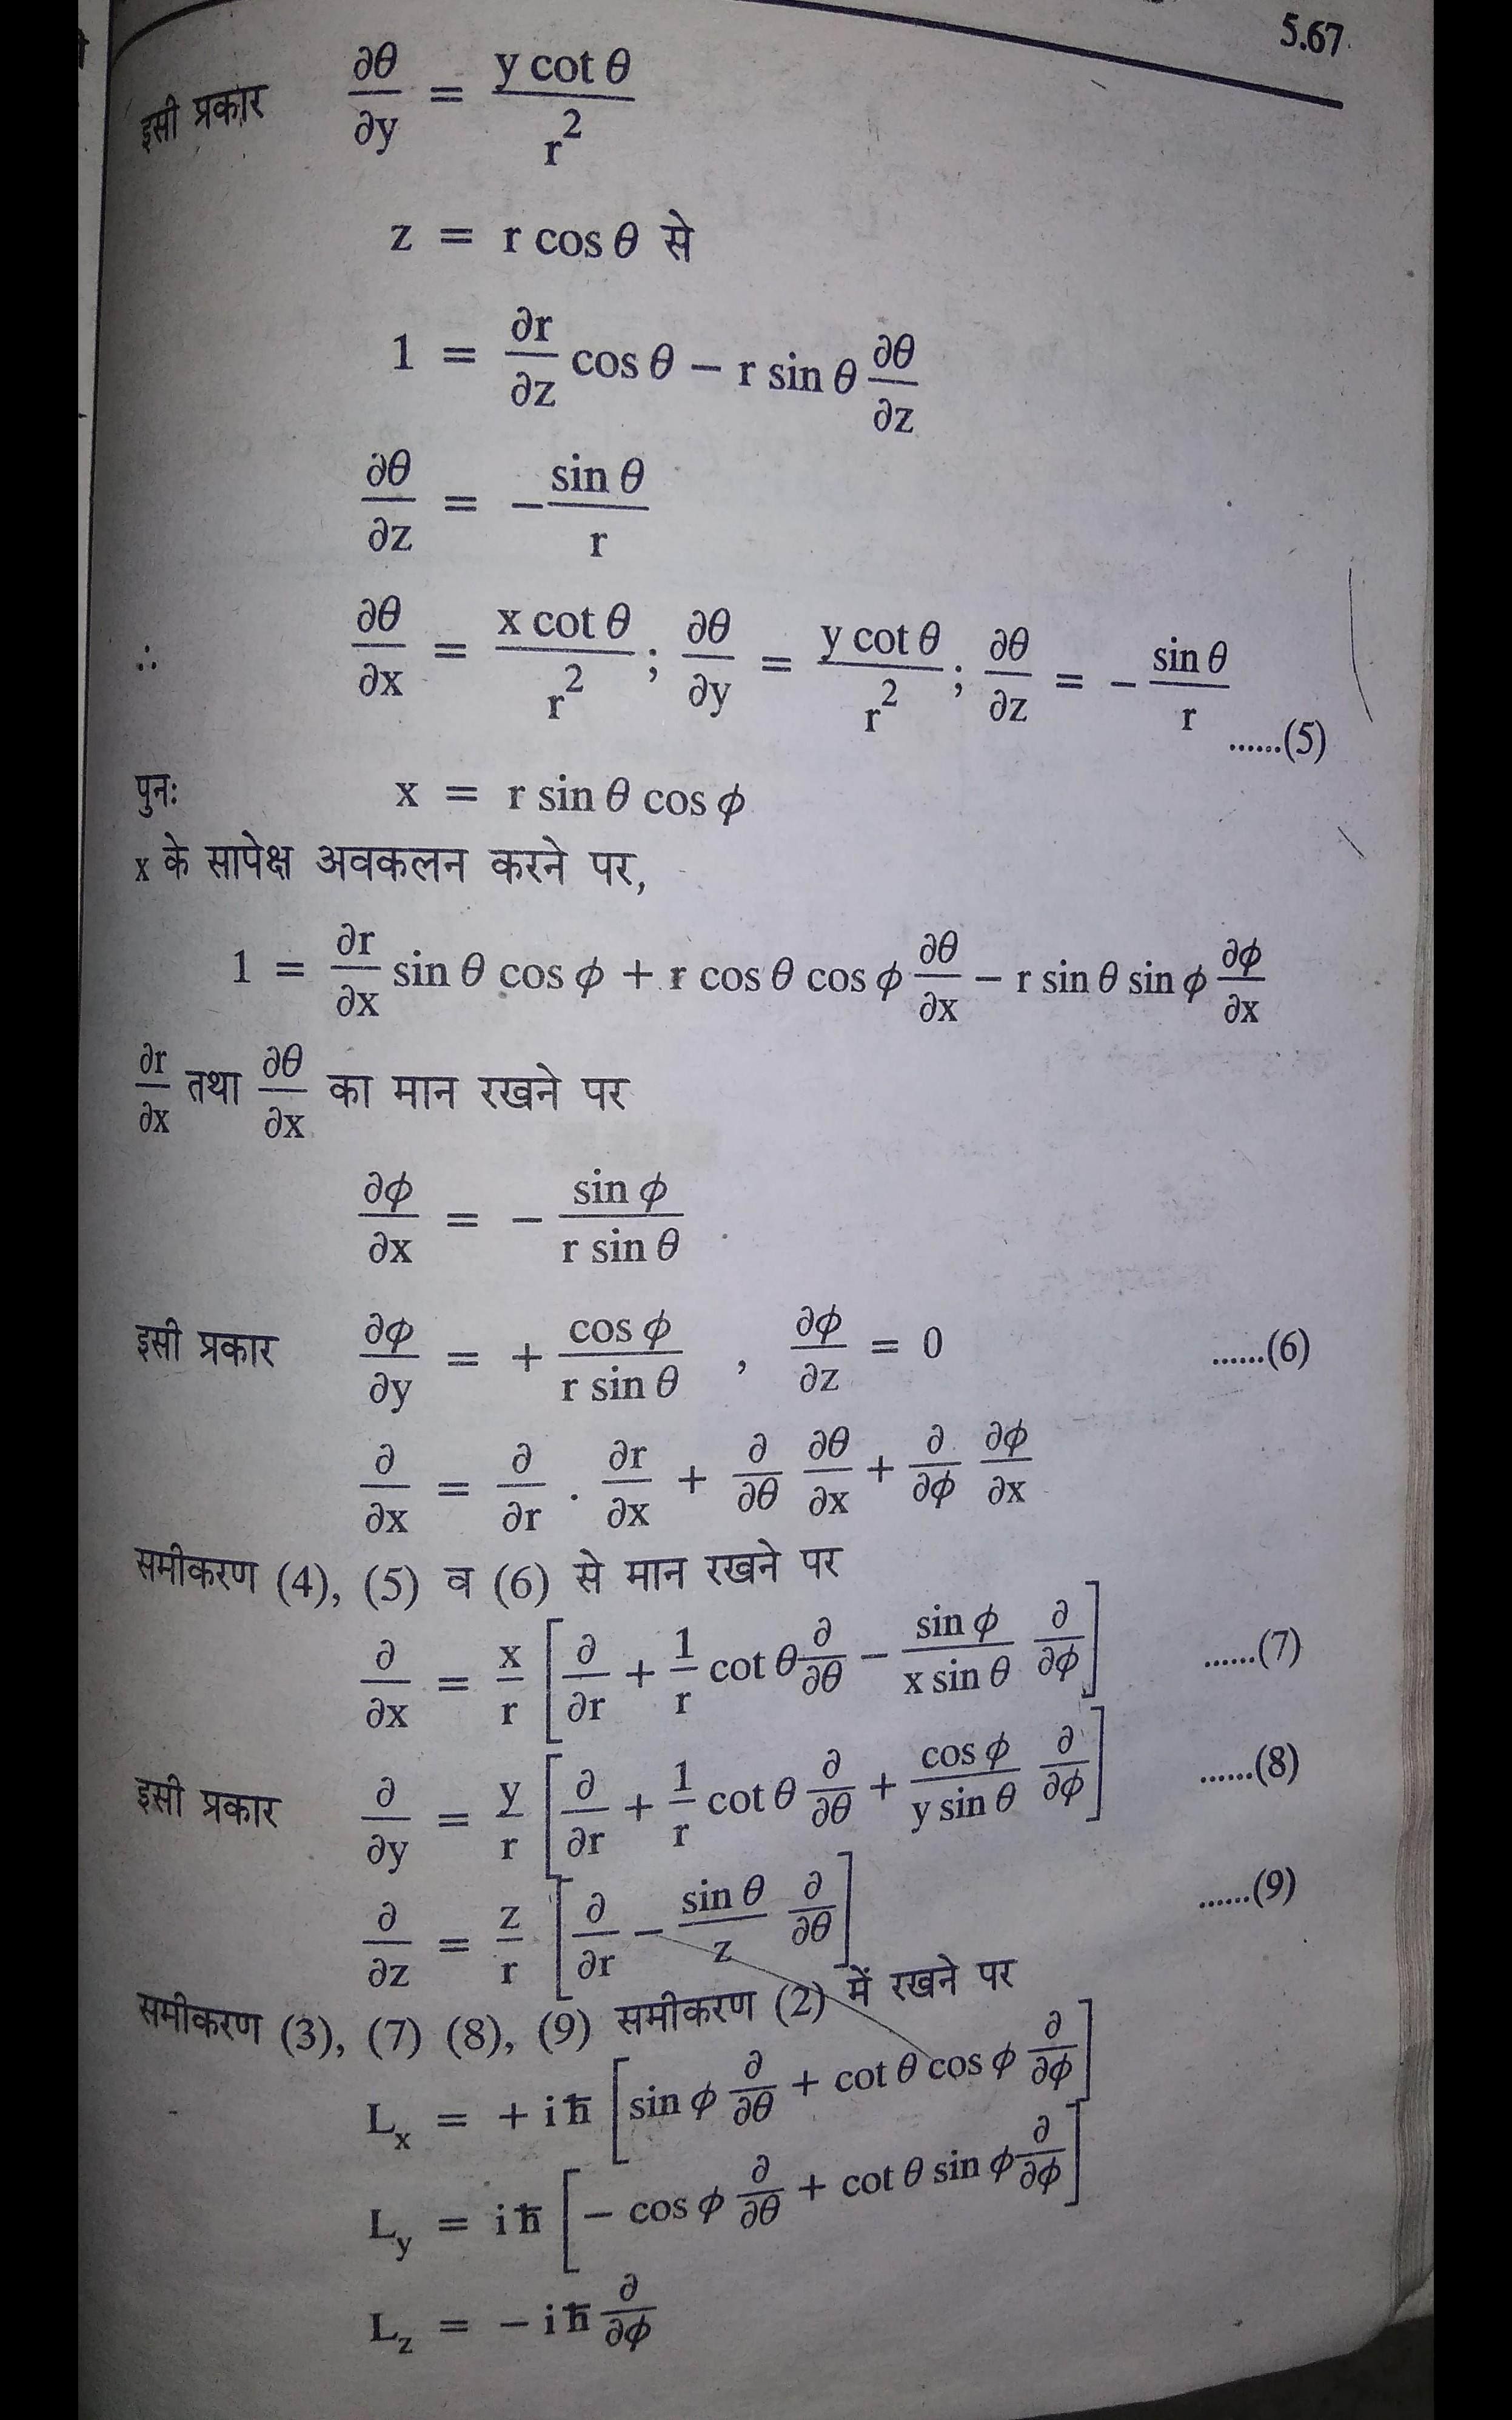 5.67
इसी प्रकार ∂θ/∂y = y cot θ / r²
z = r cos θ से
1 = ∂r/∂z cos θ − r sin θ ∂θ/∂z
∂θ/∂z = − sin θ / r
∴ ∂θ/∂x = x cot θ / r² ; ∂θ/∂y = y cot θ / r² ; ∂θ/∂z = − sin θ / r ......(5)
पुनः x = r sin θ cos ϕ
x के सापेक्ष अवकलन करने पर,
1 = ∂r/∂x sin θ cos ϕ + r cos θ cos ϕ ∂θ/∂x − r sin θ sin ϕ ∂ϕ/∂x
∂r/∂x तथा ∂θ/∂x का मान रखने पर
∂ϕ/∂x = − sin ϕ / r sin θ
इसी प्रकार ∂ϕ/∂y = + cos ϕ / r sin θ , ∂ϕ/∂z = 0 ......(6)
∂/∂x = ∂/∂r . ∂r/∂x + ∂/∂θ ∂θ/∂x + ∂/∂ϕ ∂ϕ/∂x
समीकरण (4), (5) व (6) से मान रखने पर
∂/∂x = x/r [∂/∂r + 1/r cot θ ∂/∂θ − sin ϕ / x sin θ ∂/∂ϕ] ......(7)
इसी प्रकार ∂/∂y = y/r [∂/∂r + 1/r cot θ ∂/∂θ + cos ϕ / y sin θ ∂/∂ϕ] ......(8)
∂/∂z = z/r [∂/∂r − sin θ / z ∂/∂θ] ......(9)
समीकरण (3), (7) (8), (9) समीकरण (2) में रखने पर
Lₓ = + iħ [sin ϕ ∂/∂θ + cot θ cos ϕ ∂/∂ϕ]
L_y = iħ [− cos ϕ ∂/∂θ + cot θ sin ϕ ∂/∂ϕ]
L_z = − iħ ∂/∂ϕ